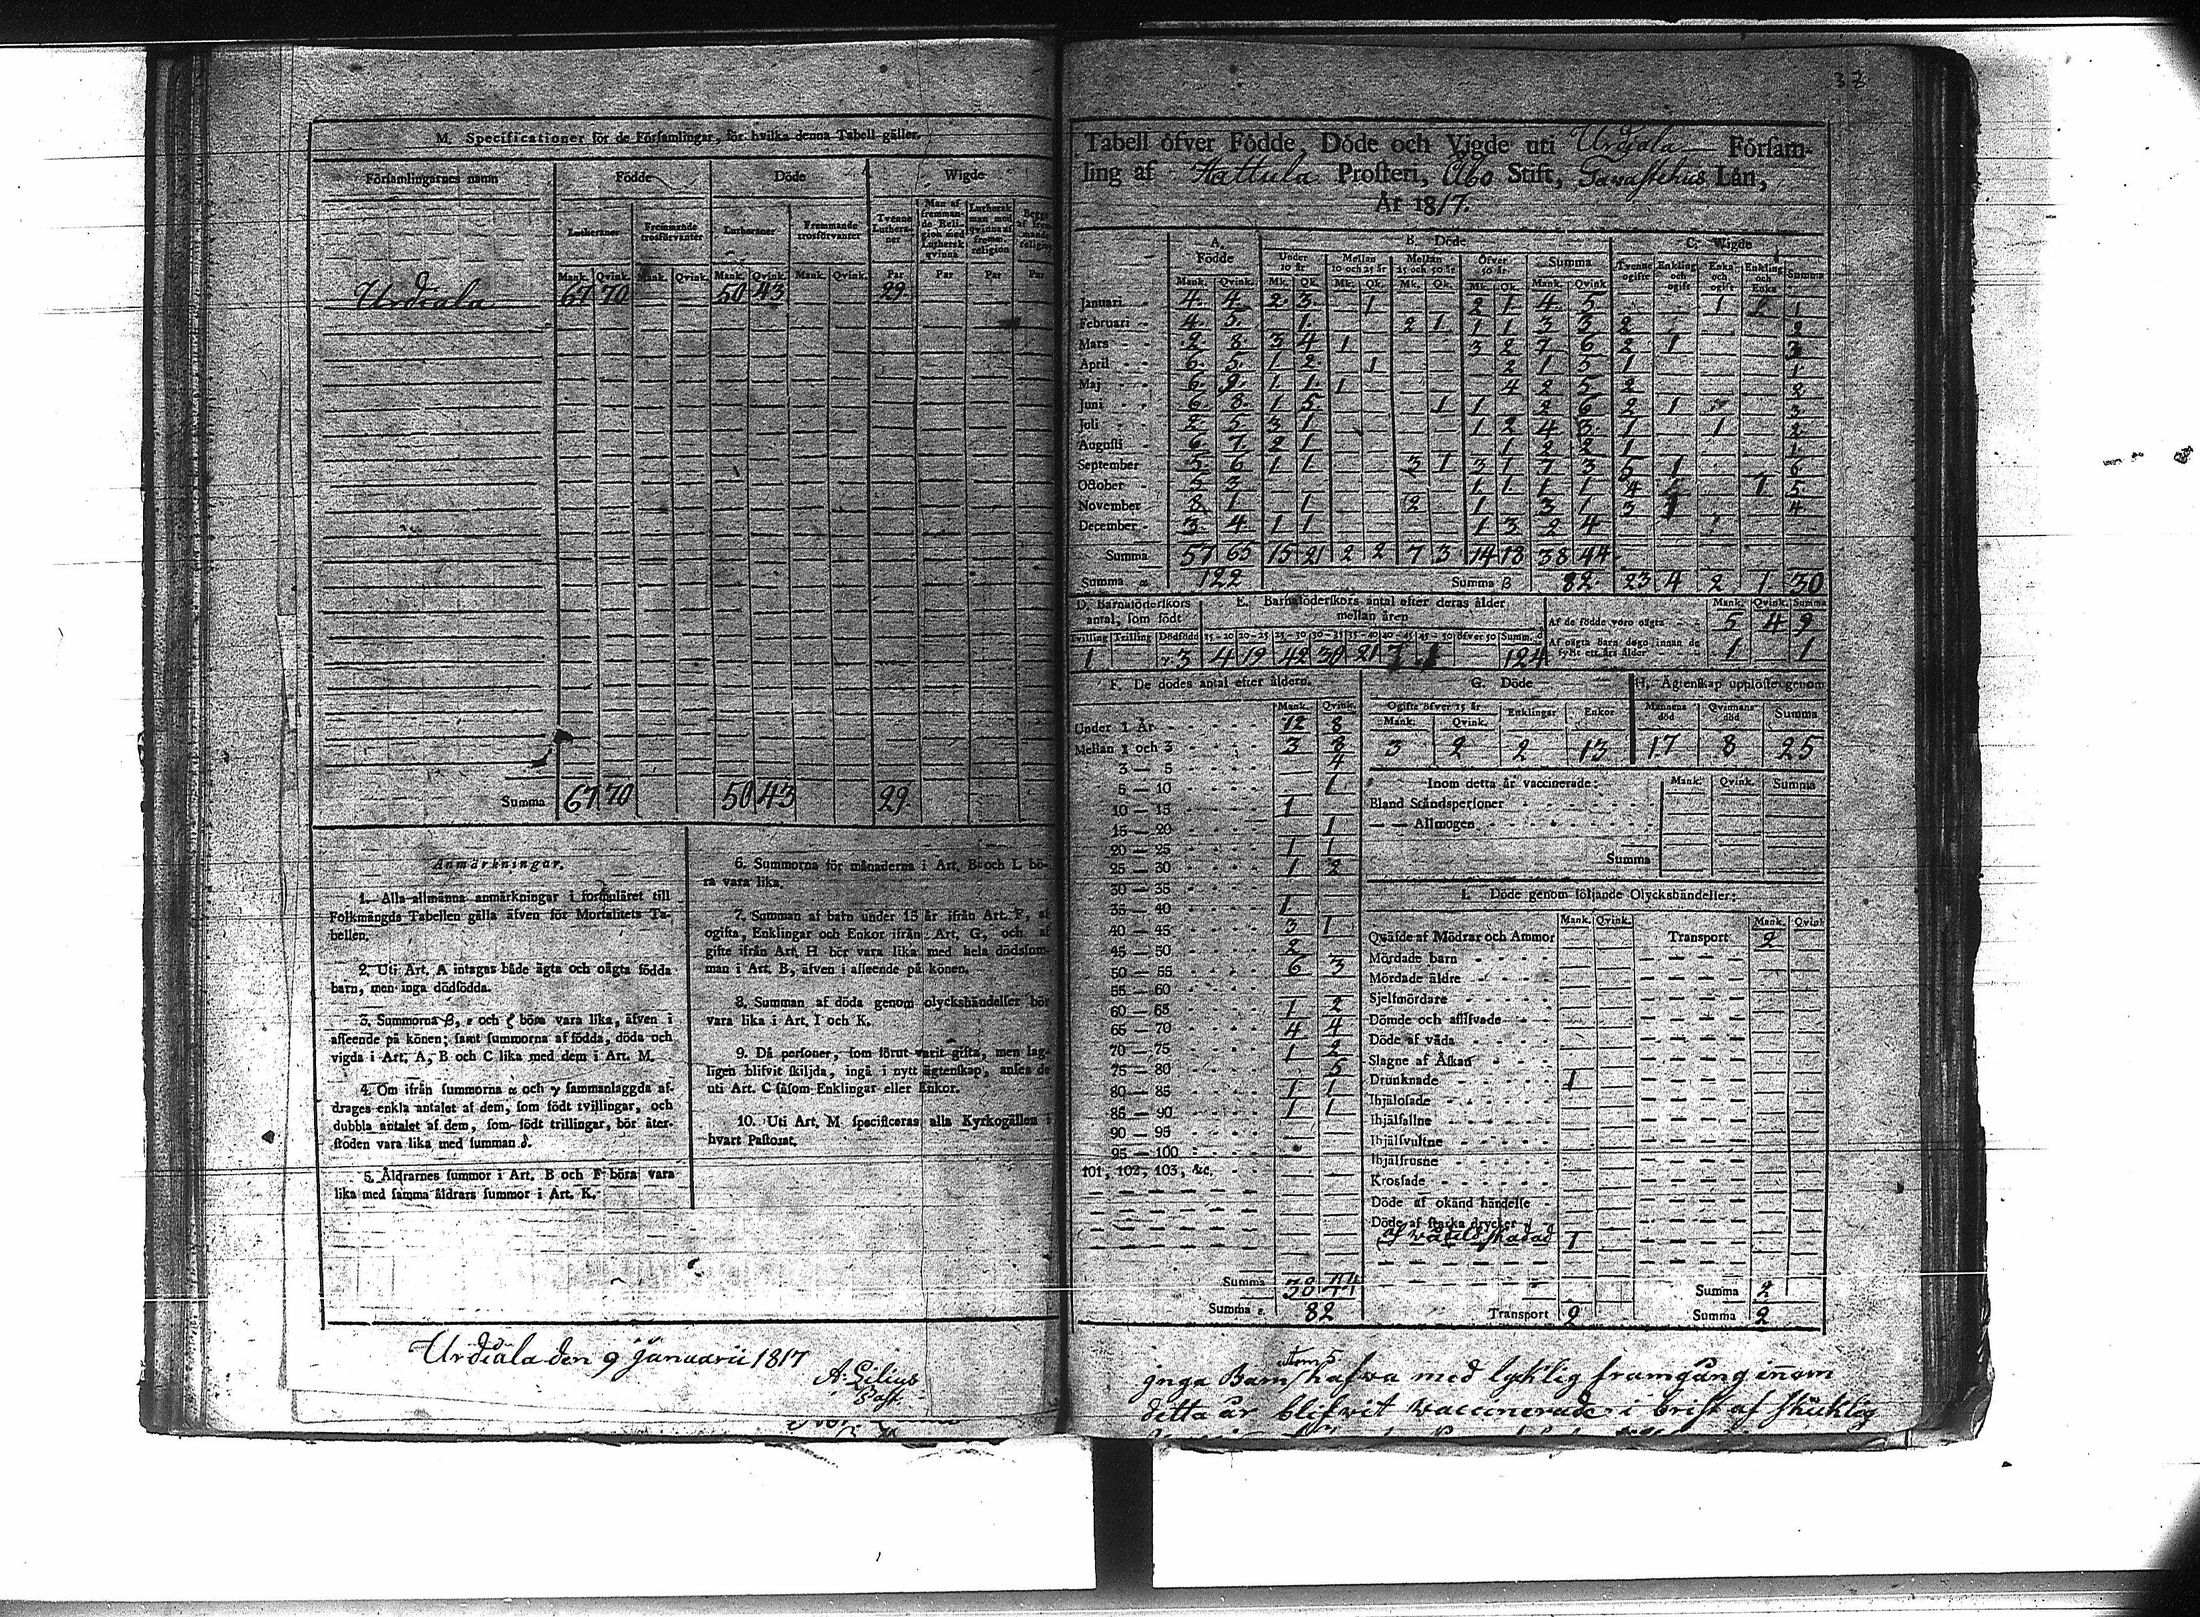 M. Specificationer för de Församlingar, för hvilka denna Tabell gäller.
Församlingarnes namn Födde Döde Wigde
Lutheraner Fremmande trosförvanter Lutheraner Fremmande trosförvanter Tvenne Lutheraner Man af fremmande Religion med Luthersk qvinna Luthersk man med qvinna af fremm. religion
Mank. Qvink. Mank. Qvink. Mank. Qvink. Mank. Qvink. Par Par Par Par
Urdiala 67 70 50 43 29
Summa 67 70 50 43 29
Anmärkningar.
1. Alla allmänna anmärkningar i formuläret till
Folkmängds Tabellen gälla äfven för Mortalitets Ta-
bellen.
2. Uti Art. A intagas både ägta och oägta födda
barn, men inga dödfödda.
3. Summorna β, ε och ζ böra vara lika, äfven i
afseende på könen; samt summorna af födda, döda och
vigda i Art. A, B och C lika med dem i Art. M.
4. Om ifrån summorna α och γ sammanlaggda af-
drages enkla antalet af dem, som födt tvillingar, och
dubbla antalet af dem, som födt trillingar, bör åter-
stoden vara lika med summan δ.
5. Åldrarnes summor i Art. B och F böra vara
lika med samma åldrars summor i Art. K.
6. Summorna för månaderna i Art. B och L bö-
ra vara lika.
7. Summan af barn under 15 år ifrån Art. F, af
ogifta, Enklingar och Enkor ifrån Art. G, och af
gifte ifrån Art. H bör vara lika med hela dödssum-
man i Art. B, äfven i afseende på könen.
8. Summan af döda genom olyckshändelser bör
vara lika i Art. I och K.
9. Då personer, som förut varit gifta, men lag-
ligen blifvit skiljda, ingå i nytt ägtenskap, anses de
uti Art. C såsom Enklingar eller Enkor.
10. Uti Art. M specificeras alla Kyrkogällen i
hvart Pastorat.
Urdiala den 9 Januarii 1817
A. Gilius
Past.
32
Tabell öfver Födde, Döde och Vigde uti Urdiala Försam-
ling af Hattula Prosteri, Åbo Stift, Tavastehus Län,
År 1817.
A. Födde B. Döde C. Wigde
Under 10 år Mellan 10 och 25 år Mellan 25 och 50 år Öfver 50 år Summa Tvenne ogifte Enkling och ogift Enka och ogift Enkling och Enka Summa
Mank. Qvink. Mk. Qk. Mk. Qk. Mk. Qk. Mk. Qk. Mank. Qvink
Januari 4 4 2 3 1 2 1 4 5 1 1
Februari 4 5 1 2 1 1 1 3 3 2 2
Mars 2 8 3 4 1 3 2 7 6 2 1 3
April 6 5 1 2 1 2 1 5 1 1
Maj 6 9 1 1 1 4 2 5 2 2
Juni 6 8 1 5 1 1 2 6 2 1 3
Juli 2 5 3 1 1 2 4 3 1 1 2
Augusti 6 7 2 1 1 2 2 1 1
September 5 6 1 1 3 1 3 1 7 3 5 1 6
October 5 3 1 1 1 1 4 1 5
November 8 1 1 2 1 3 1 3 1 4
December 3 4 1 1 1 3 2 4
Summa 57 65 15 21 2 2 7 3 14 18 38 44
Summa α 122 Summa β 82 23 4 2 1 30
D. Barnsföderskors antal, som födt E. Barnsföderskors antal efter deras ålder mellan åren Mank. Qvink. Summa
Af de födde voro oägta 5 4 9
Af oägta Barn dogo innan de fyllt ett års ålder 1 1
Tvilling Trilling Dödfödde 15-20 20-25 25-30 30-35 35-40 40-45 45-50 öfver 50 Summ. δ
1 3 4 19 42 30 21 7 1 124
F. De dödes antal efter åldern.
Mank. Qvink.
Under 1 År 12 8
Mellan 1 och 3 3 8
3 — 5 4
5 — 10 1
10 — 15 1
15 — 20 1
20 — 25 1 1
25 — 30 1 2
30 — 35
35 — 40 1
40 — 45 3 1
45 — 50 2
50 — 55 6 3
55 — 60
60 — 65 1 2
65 — 70 4 4
70 — 75 1 2
75 — 80 5
80 — 85 1 1
85 — 90 1 1
90 — 95
95 — 100
101, 102, 103, &c.
Summa 38 44
Summa ε. 82
G. Döde H. Ägtenskap upplöste genom
Ogifte öfver 15 år Enklingar Enkor Mannens död Qvinnans död Summa
Mank. Qvink.
3 2 2 13 17 8 25
Inom detta år vaccinerade: Mank. Qvink. Summa
Bland Ståndspersoner
— — Allmogen
Summa
I. Döde genom följande Olyckshändelser:
Mank. Qvink. Mank. Qvink
Qväfde af Mödrar och Ammor Transport 2
Mördade barn
Mördade äldre
Sjelfmördare
Dömde och aflifvade
Döde af våda
Slagne af Åskan
Drunknade 1
Ihjälosade
Ihjälfallne
Ihjälsvultne
Ihjälfrusne
Krossade
Döde af okänd händelse
Döde af starka drycker
af vådeld skadad 1
Summa 2
Transport 2 Summa 2
utom 5
Inga Barn hafwa med lyklig framgång innom
detta år blifwit waccinerade i brist af skicklig